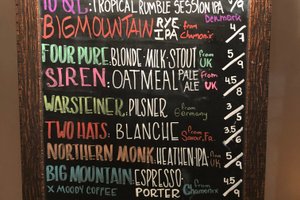 TROPICAL RUMBLE SESSION IPA /9
Denmark
BIG MOUNTAIN RYE IPA from Chamonix 4/9
FOUR PURE: BLONDE MILK STOUT from UK 5/9
SIREN: OATMEAL PALE ALE from UK 4.5/8
WARSTEINER: PILSNER from Germany 3/5
TWO HATS: BLANCHE from Savoie, Fr. 3.5/6
NORTHERN MONK: HEATHEN IPA from UK 5/9
BIG MOUNTAIN ESPRESSO PORTER from Chamonix 4.5/9
X MOODY COFFEE